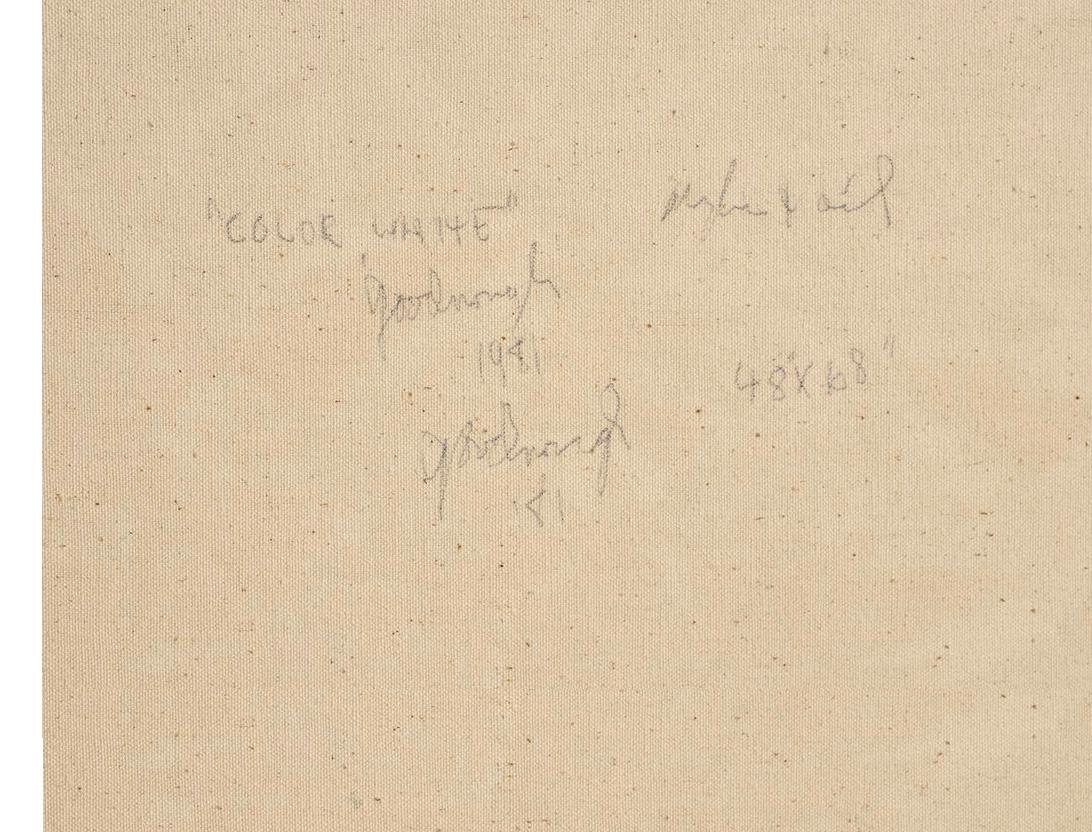 "COLOR WHITE"
& oil
Goodnough
1981
48"X68"
Goodnough
'81